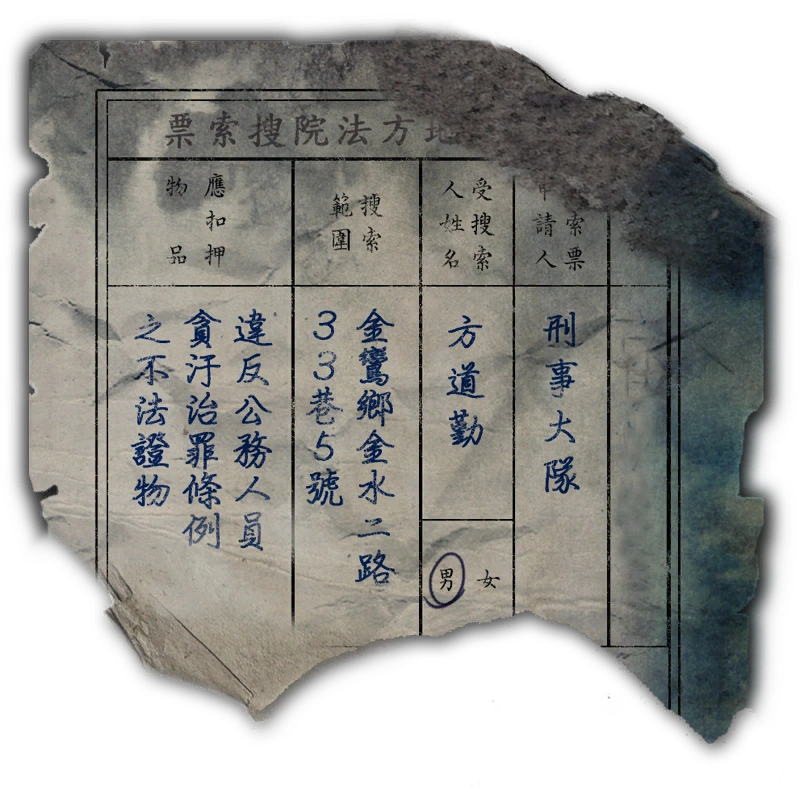 方法院搜索票
索票
請人
刑事大隊
受搜索
人姓名
方道勤
男 女
搜索
範圍
金鸞鄉金水二路
33巷5號
應扣押
物品
違反公務人員
貪汙治罪條例
之不法證物